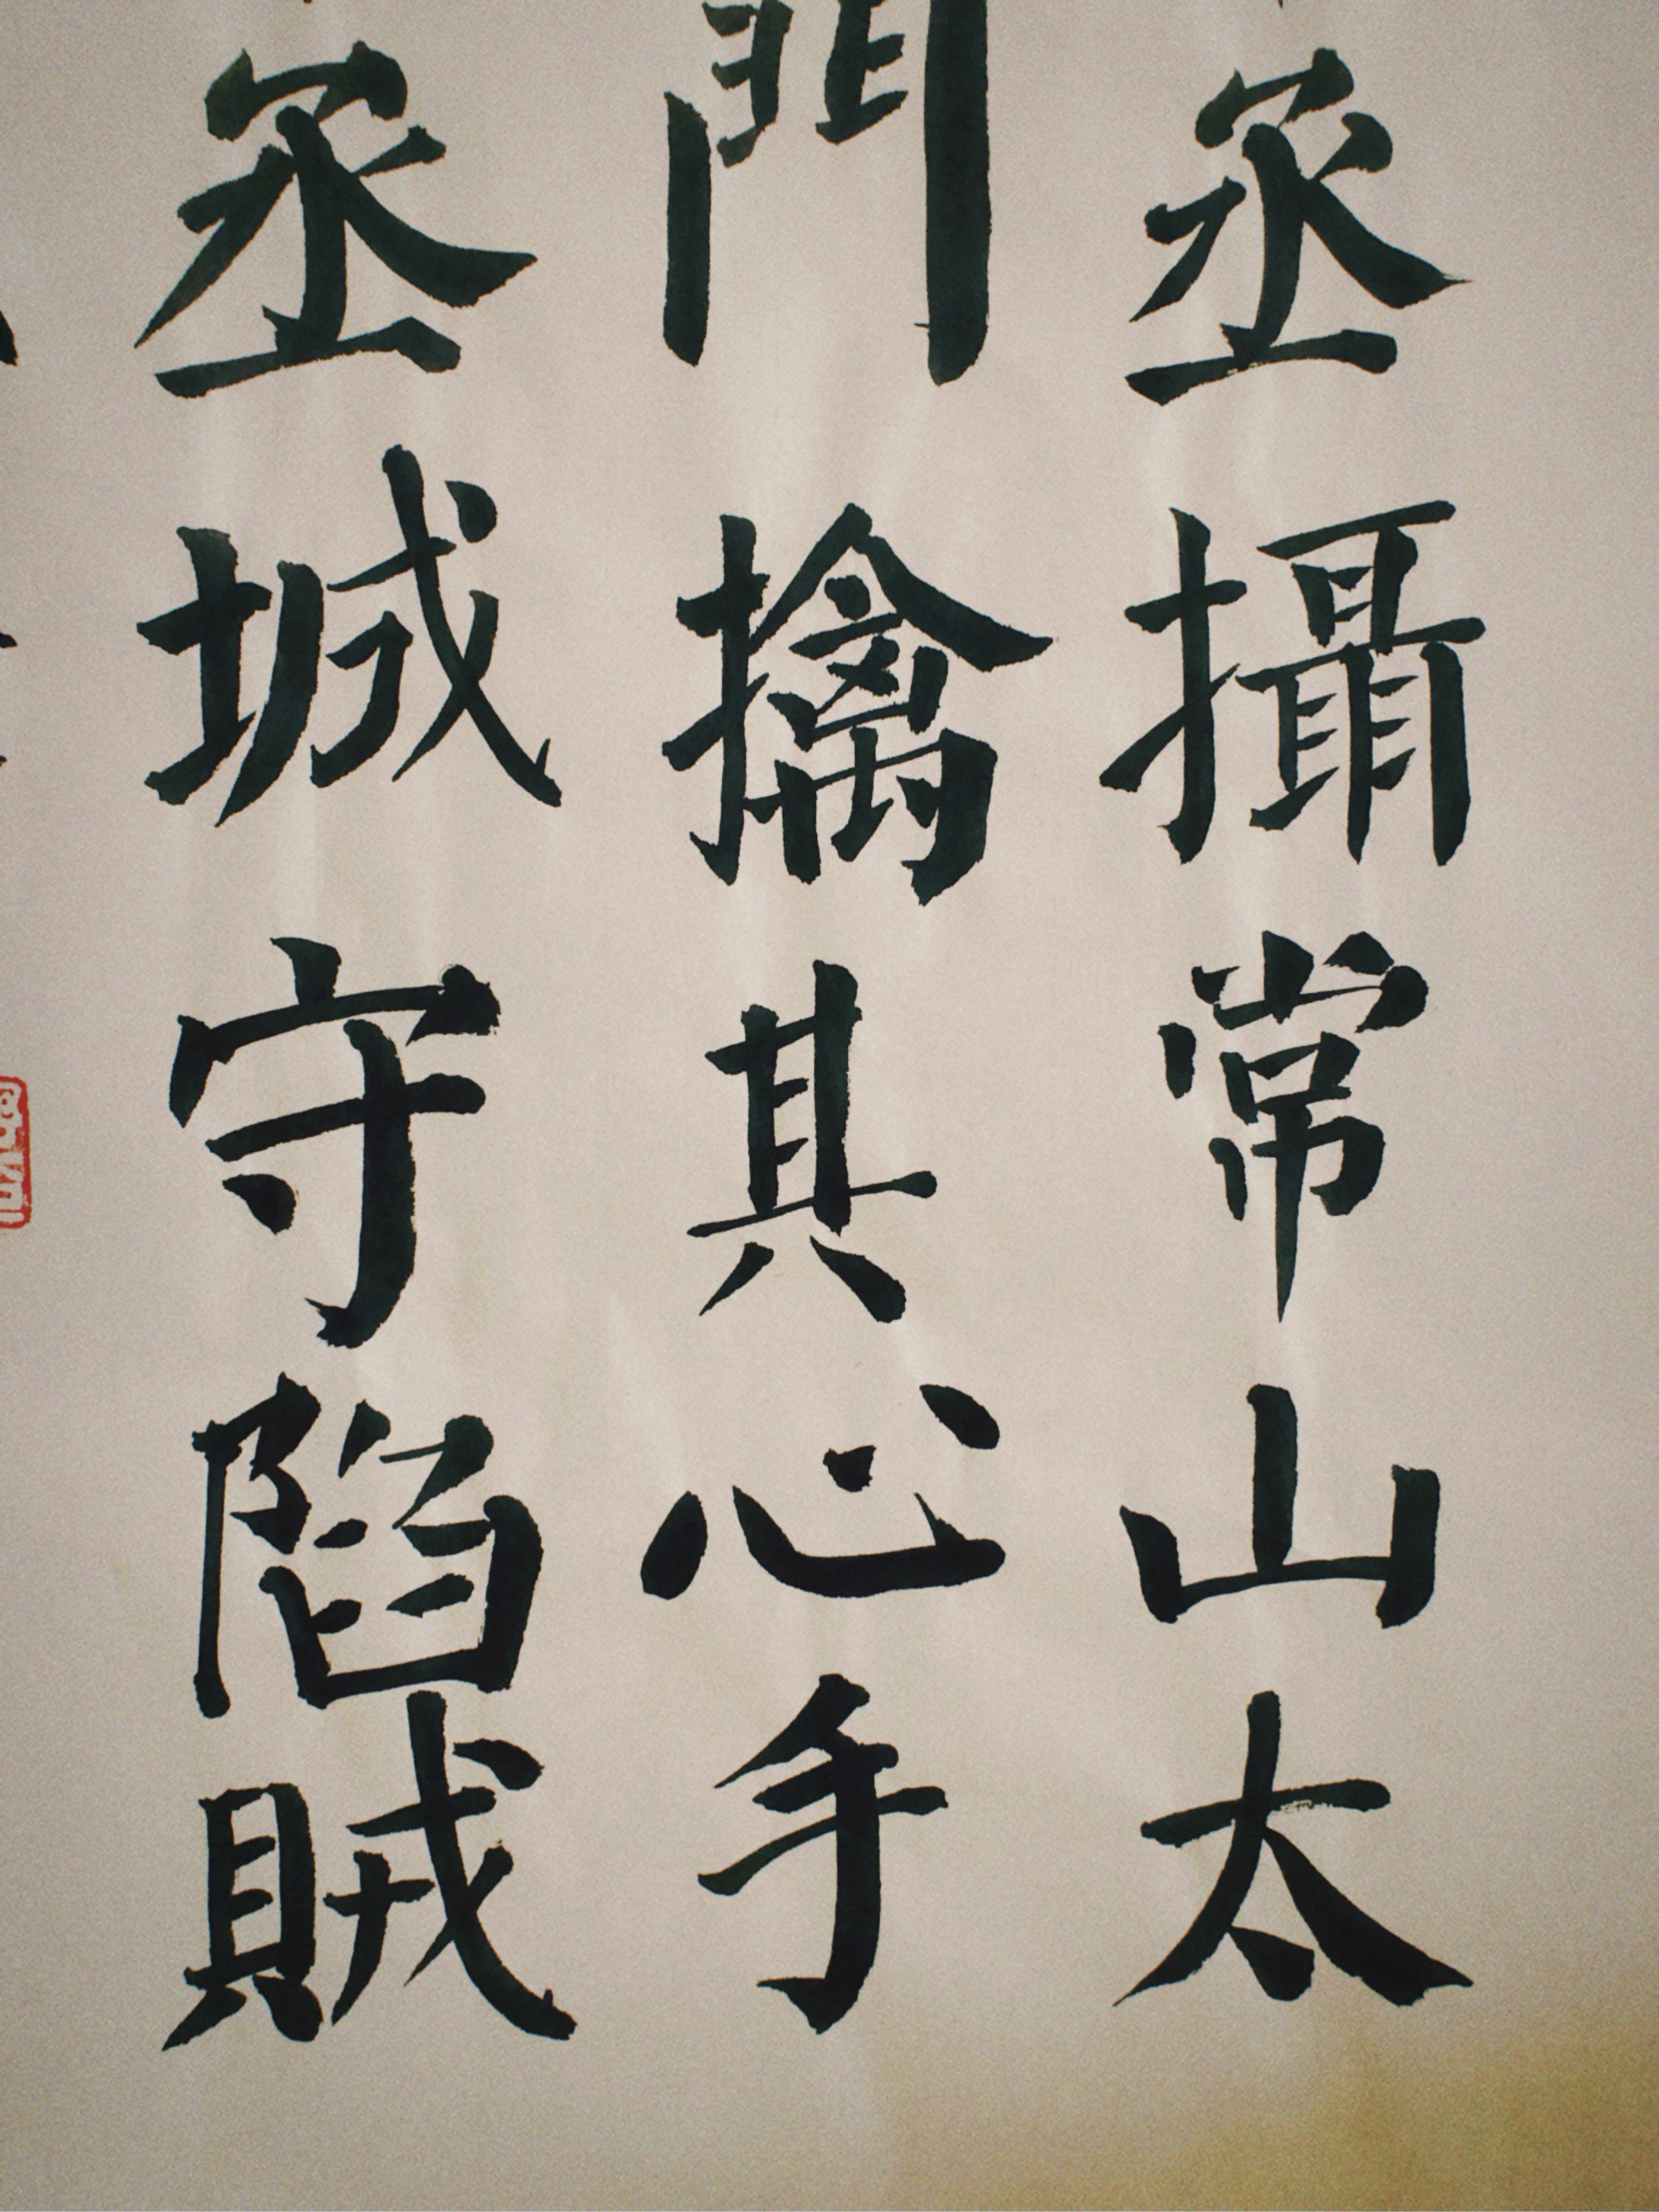 丞攝常山太
門擒其心手
丞城守陷賊